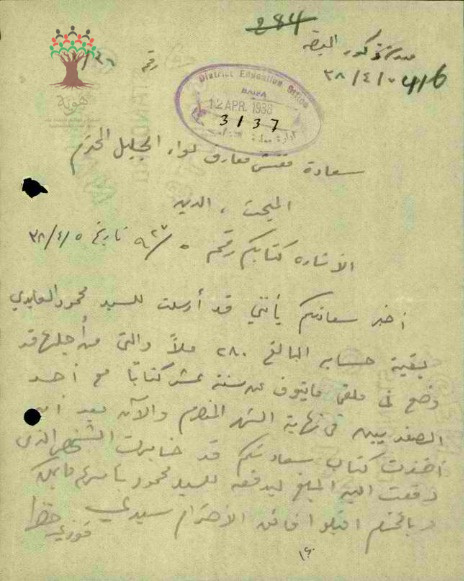 284
مدرسة كور البقة
416
٣٨/٤/١٠
رقم
هوية
District Education Office
HAIFA
12 APR. 1938
3137
سعادة مفتش معارف لواء الجليل المحترم
المبحث، الدين
الاشارة كتابكم رقم تاريخ ٣٨/٤/٥
أخبر سعادتكم بأنني قد أرسلت للسيد محمود العابدي
بقية حسابه البالغ ٢٨٠ ملاً والتي من أجلها قد
وضع في ملفي ما ينوف عن ستة عشر كتاباً مع أحد
الصفديين في نهاية الشهر المنصرم والآن بعد أن
أخذت كتاب سعادتكم قد خابرت الشخص الذي
دفعت اليه المبلغ ليدفعه للسيد محمود بأسرع ما يمكن
وبالختام اقبلوا فائق الاحترام سيدي
فوزي